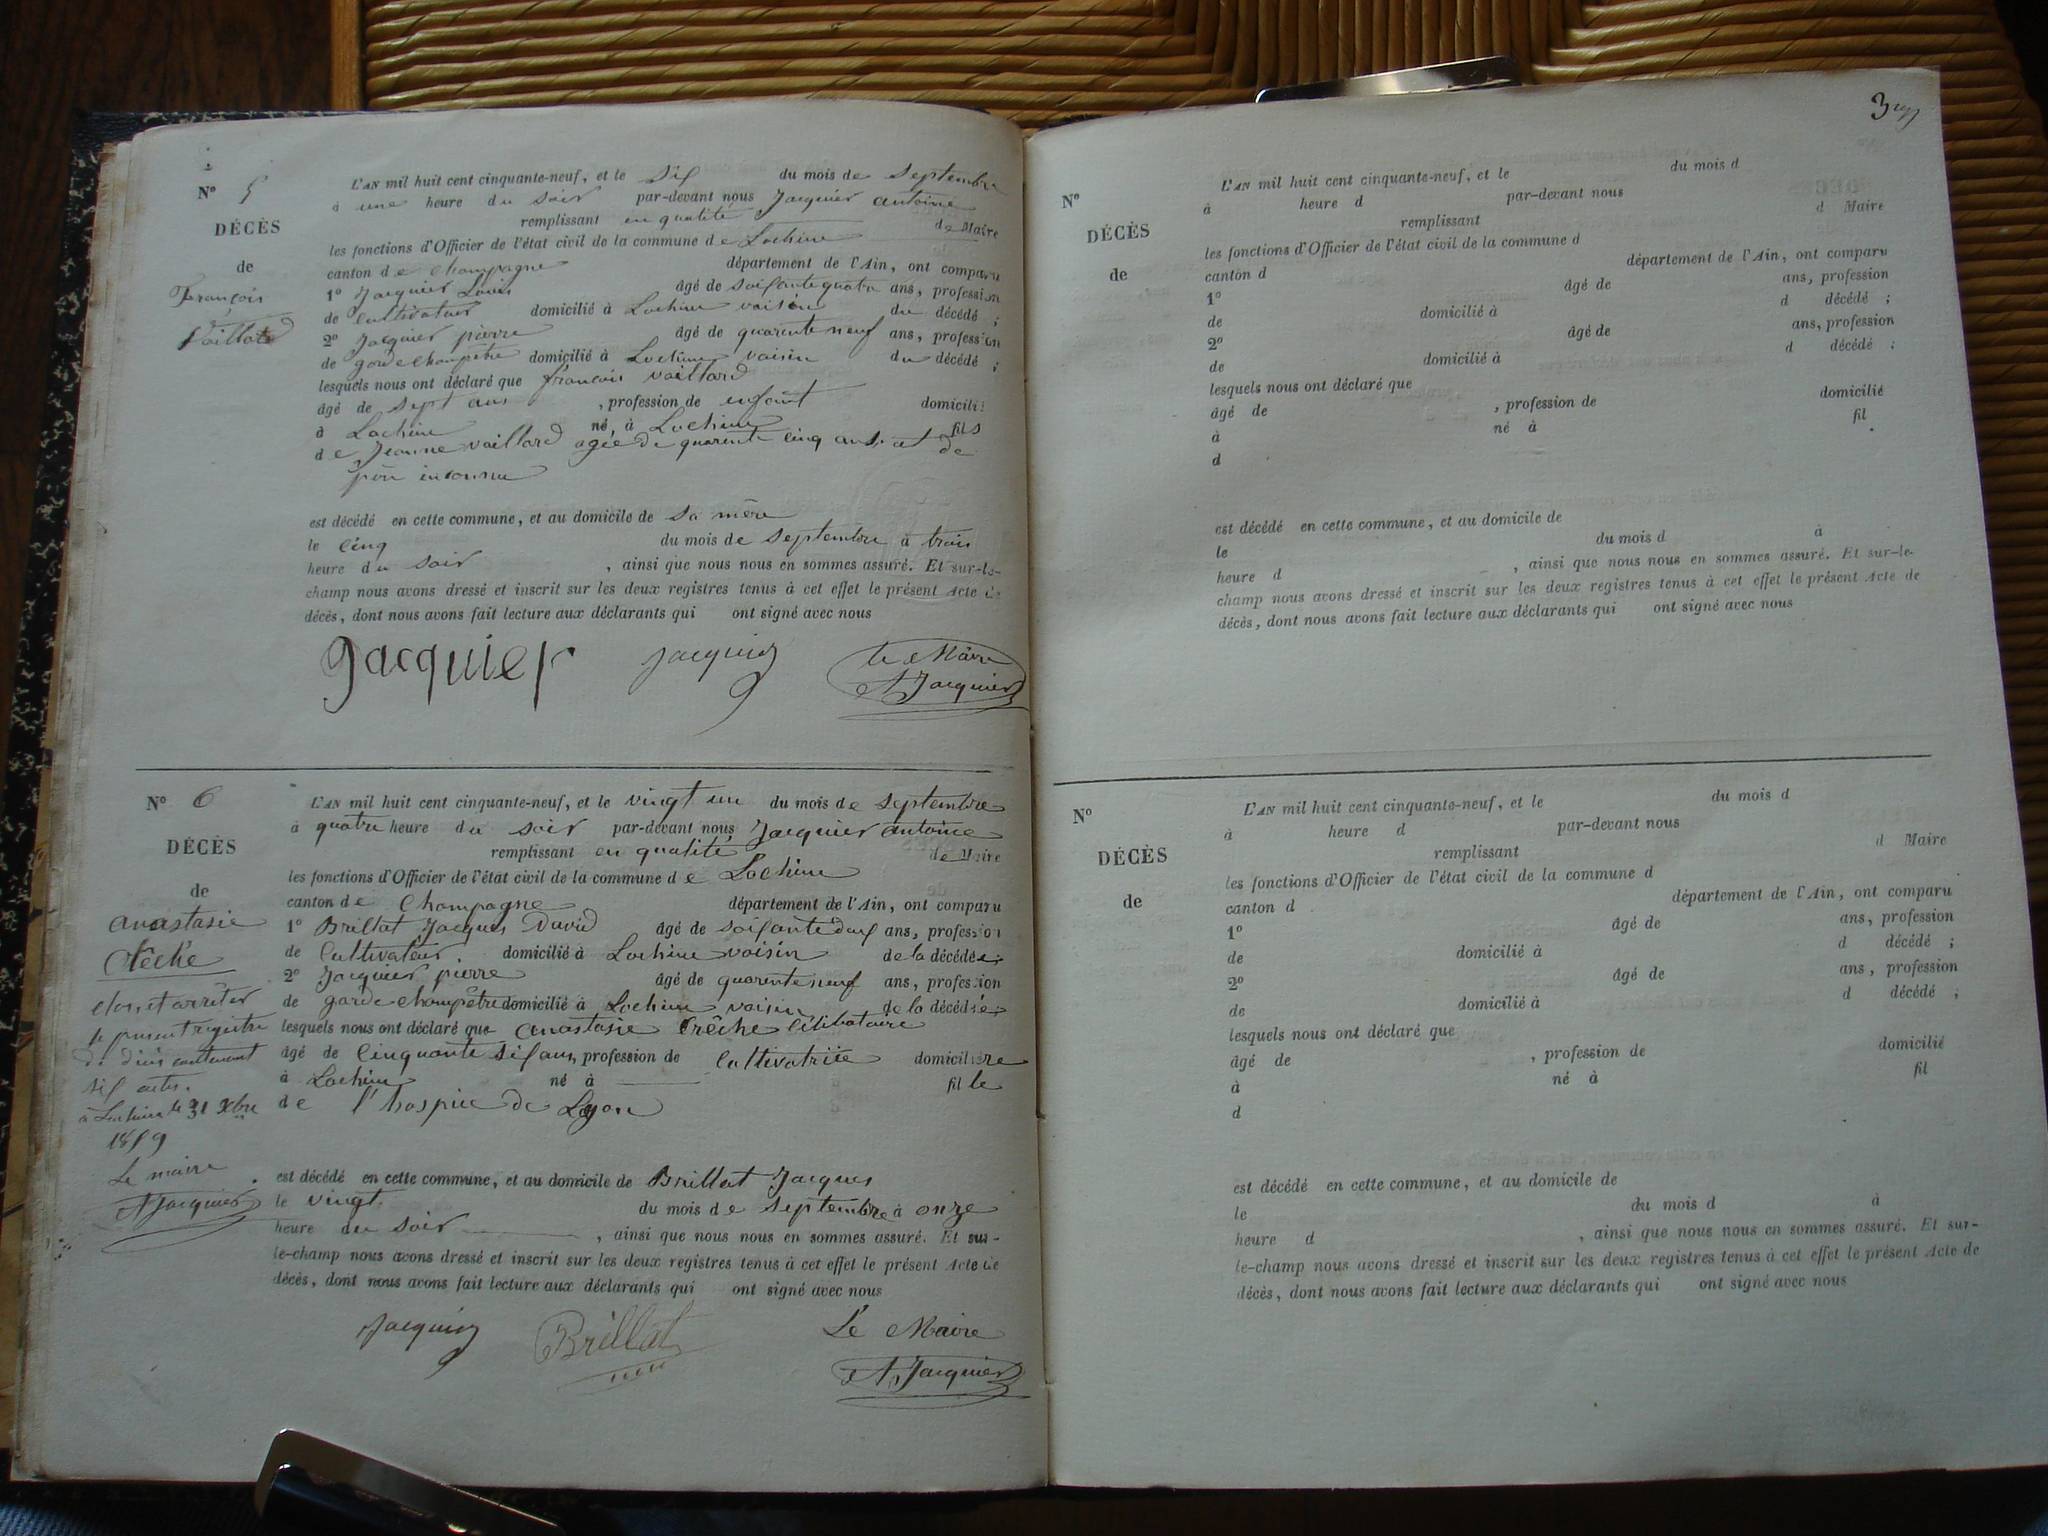 N° 5
DÉCÈS
de
François
Vaillard
L'AN mil huit cent cinquante-neuf, et le six du mois de septembre
à une heure du soir par-devant nous Jacquier antoine
remplissant en qualité de Maire
les fonctions d'Officier de l'état civil de la commune de Lochieu
canton de Champagne département de l'Ain, ont comparu
1° Jacquier Louis âgé de soixante quatre ans, profession
de Cultivateur domicilié à Lochieu voisin du décédé ;
2° Jacquier pierre âgé de quarente neuf ans, profession
de garde Champêtre domicilié à Lochieu voisin du décédé ;
lesquels nous ont déclaré que françois vaillard
âgé de sept ans , profession de enfant domicilié
à Lochieu né à Lochieu fils
de Jeanne vaillard agée de quarente cinq ans et de
père inconnu
est décédé en cette commune, et au domicile de sa mère
le cinq du mois de septembre à trois
heure du soir , ainsi que nous nous en sommes assuré. Et sur-le-
champ nous avons dressé et inscrit sur les deux registres tenus à cet effet le présent Acte de
décès, dont nous avons fait lecture aux déclarants qui ont signé avec nous
Jacquier Jacquier le Maire
A Jacquier
N° 6
DÉCÈS
de
anastasie
Crêche
clos et arrêter
le present registre
de décès contenant
six actes.
à Lochieu le 31 Xbre
1859
Le maire
A Jacquier
L'AN mil huit cent cinquante-neuf, et le vingt un du mois de septembre
à quatre heure du soir par-devant nous Jacquier antoine
remplissant en qualité de Maire
les fonctions d'Officier de l'état civil de la commune de Lochieu
canton de Champagne département de l'Ain, ont comparu
1° Brillat Jacques David âgé de soixante deux ans, profession
de Cultivateur. domicilié à Lochieu voisin de la décédée
2° Jacquier pierre âgé de quarente neuf ans, profession
de garde Champêtre domicilié à Lochieu voisin de la décédée
lesquels nous ont déclaré que anastasie Crêche célibataire
âgé de Cinquante six ans, profession de Cultivatrice domicilière
à Lochieu né à fille
de l'hospice de Lyon
est décédé en cette commune, et au domicile de Brillat Jacques
le vingt du mois de septembre à onze
heure du soir , ainsi que nous nous en sommes assuré. Et sur-
le-champ nous avons dressé et inscrit sur les deux registres tenus à cet effet le présent Acte de
décès, dont nous avons fait lecture aux déclarants qui ont signé avec nous
Jacquier Brillat Le Maire
A Jacquier
3
N°
DÉCÈS
de
L'AN mil huit cent cinquante-neuf, et le du mois d
à heure d par-devant nous
remplissant d Maire
les fonctions d'Officier de l'état civil de la commune d
canton d département de l'Ain, ont comparu
1° âgé de ans, profession
de domicilié à d décédé ;
2° âgé de ans, profession
de domicilié à d décédé ;
lesquels nous ont déclaré que
âgé de , profession de domicilié
à né à fil
d
est décédé en cette commune, et au domicile de
le du mois d à
heure d , ainsi que nous nous en sommes assuré. Et sur-le-
champ nous avons dressé et inscrit sur les deux registres tenus à cet effet le présent Acte de
décès, dont nous avons fait lecture aux déclarants qui ont signé avec nous
N°
DÉCÈS
de
L'AN mil huit cent cinquante-neuf, et le du mois d
à heure d par-devant nous
remplissant d Maire
les fonctions d'Officier de l'état civil de la commune d
canton d département de l'Ain, ont comparu
1° âgé de ans, profession
de domicilié à d décédé ;
2° âgé de ans, profession
de domicilié à d décédé ;
lesquels nous ont déclaré que
âgé de , profession de domicilié
à né à fil
d
est décédé en cette commune, et au domicile de
le du mois d à
heure d , ainsi que nous nous en sommes assuré. Et sur-
le-champ nous avons dressé et inscrit sur les deux registres tenus à cet effet le présent Acte de
décès, dont nous avons fait lecture aux déclarants qui ont signé avec nous